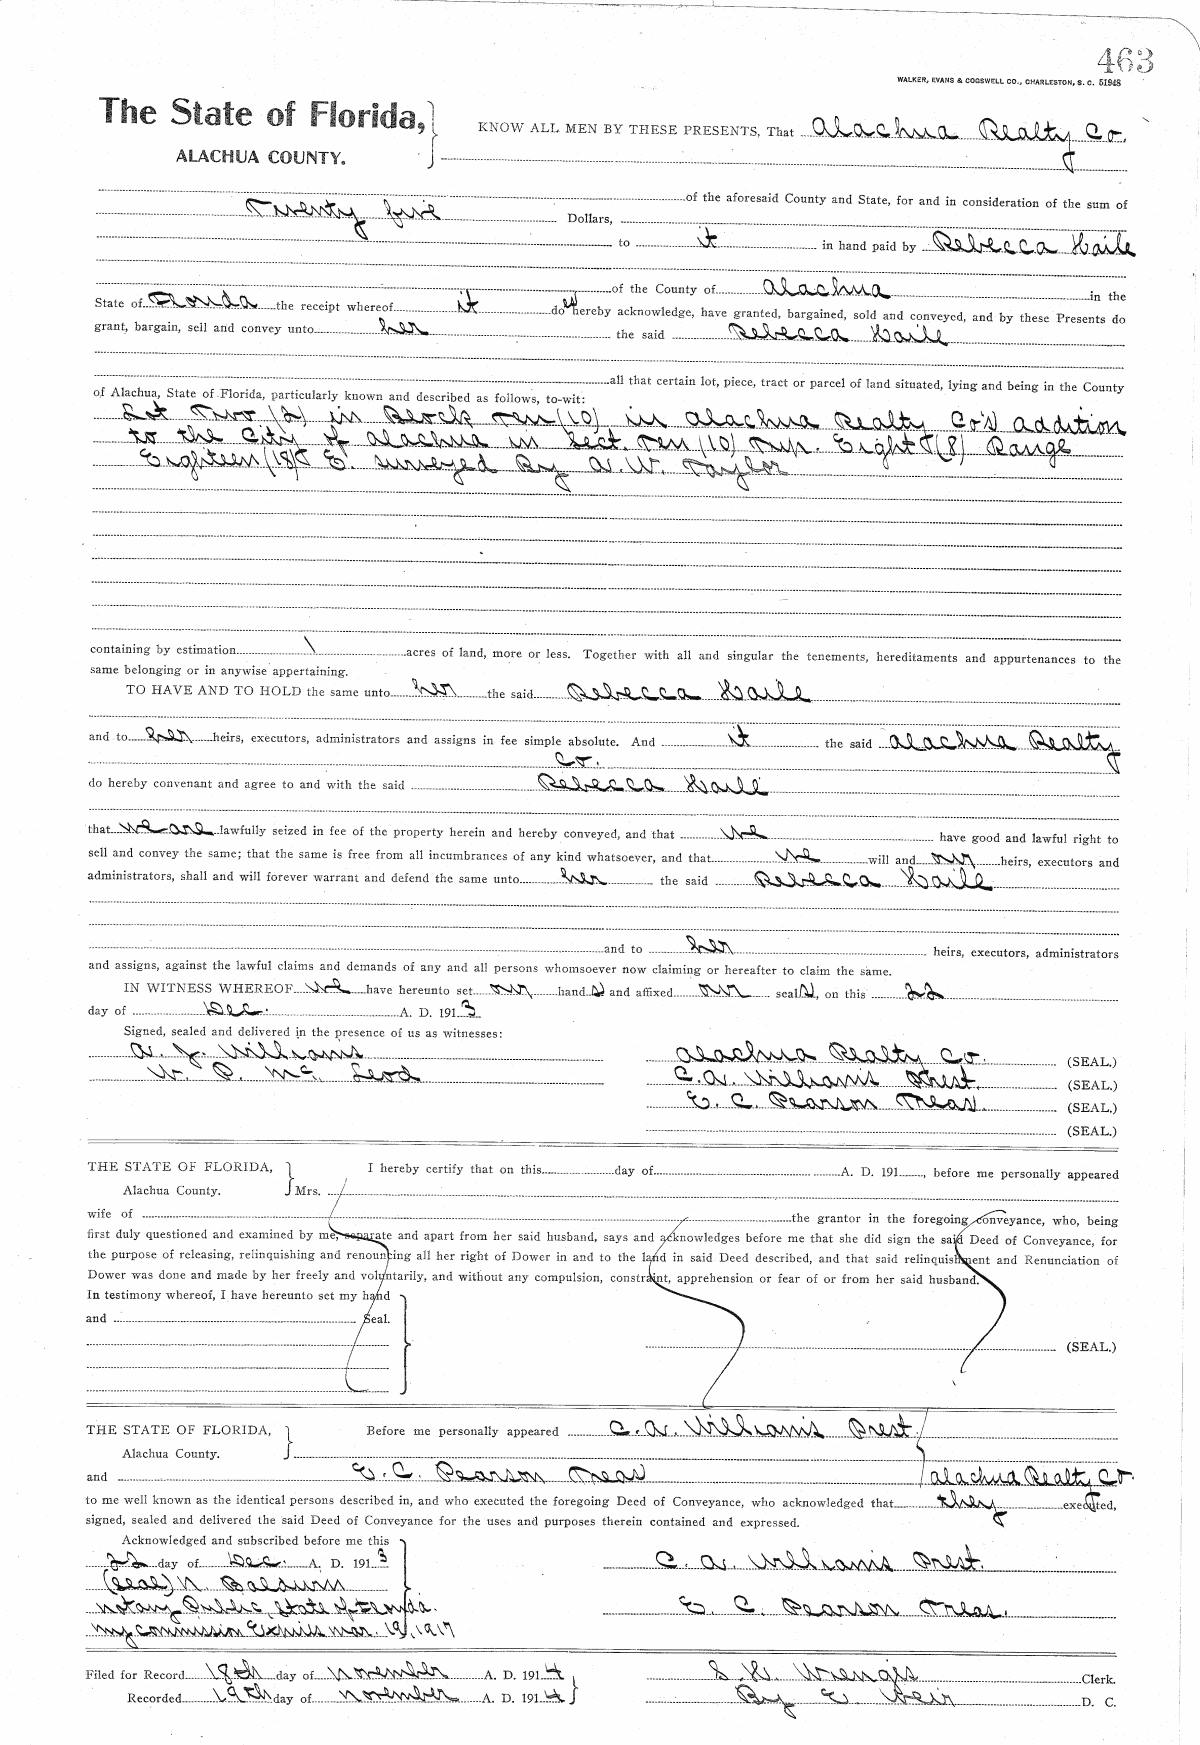 463
WALKER, EVANS & COGSWELL CO., CHARLESTON, S. C. 51948
The State of Florida,
ALACHUA COUNTY.
KNOW ALL MEN BY THESE PRESENTS, That Alachua Realty Co.
of the aforesaid County and State, for and in consideration of the sum of
Twenty five Dollars,
to it in hand paid by Rebecca Haile
of the County of Alachua in the
State of Florida the receipt whereof it does hereby acknowledge, have granted, bargained, sold and conveyed, and by these Presents do
grant, bargain, sell and convey unto her the said Rebecca Haile
all that certain lot, piece, tract or parcel of land situated, lying and being in the County
of Alachua, State of Florida, particularly known and described as follows, to-wit:
Lot Two (2) in Block Ten (10) in Alachua Realty Co's addition
to the City of Alachua in Sect. Ten (10) Twp. Eight S (8) Range
Eighteen (18) E. surveyed By A. W. Taylor
containing by estimation \ acres of land, more or less. Together with all and singular the tenements, hereditaments and appurtenances to the
same belonging or in anywise appertaining.
TO HAVE AND TO HOLD the same unto her the said Rebecca Haile
and to her heirs, executors, administrators and assigns in fee simple absolute. And it the said Alachua Realty
Co.
do hereby convenant and agree to and with the said Rebecca Haile
that we are lawfully seized in fee of the property herein and hereby conveyed, and that we have good and lawful right to
sell and convey the same; that the same is free from all incumbrances of any kind whatsoever, and that we will and our heirs, executors and
administrators, shall and will forever warrant and defend the same unto her the said Rebecca Haile
and to her heirs, executors, administrators
and assigns, against the lawful claims and demands of any and all persons whomsoever now claiming or hereafter to claim the same.
IN WITNESS WHEREOF we have hereunto set our hand s and affixed our seal s, on this 22
day of Dec. A. D. 1913
Signed, sealed and delivered in the presence of us as witnesses:
A. J. Williams
W. P. McLeod
Alachua Realty Co. (SEAL.)
C. A. Williams Prest. (SEAL.)
E. C. Pearson Treas. (SEAL.)
(SEAL.)
THE STATE OF FLORIDA,
Alachua County.
I hereby certify that on this day of A. D. 191 , before me personally appeared
Mrs.
wife of the grantor in the foregoing conveyance, who, being
first duly questioned and examined by me, separate and apart from her said husband, says and acknowledges before me that she did sign the said Deed of Conveyance, for
the purpose of releasing, relinquishing and renouncing all her right of Dower in and to the land in said Deed described, and that said relinquishment and Renunciation of
Dower was done and made by her freely and voluntarily, and without any compulsion, constraint, apprehension or fear of or from her said husband.
In testimony whereof, I have hereunto set my hand
and Seal.
(SEAL.)
THE STATE OF FLORIDA,
Alachua County.
Before me personally appeared C. A. Williams Prest.
and E. C. Pearson Treas Alachua Realty Co.
to me well known as the identical persons described in, and who executed the foregoing Deed of Conveyance, who acknowledged that they executed,
signed, sealed and delivered the said Deed of Conveyance for the uses and purposes therein contained and expressed.
Acknowledged and subscribed before me this
22 day of Dec. A. D. 1913
(Seal) N. Baldwin
Notary Public, State of Florida.
My commission Expires Mar. 19, 1917
C. A. Williams Prest.
E. C. Pearson Treas.
Filed for Record 18th day of November A. D. 1914
Recorded 19th day of November A. D. 1914
S. H. Wienges Clerk.
By E. Weir D. C.